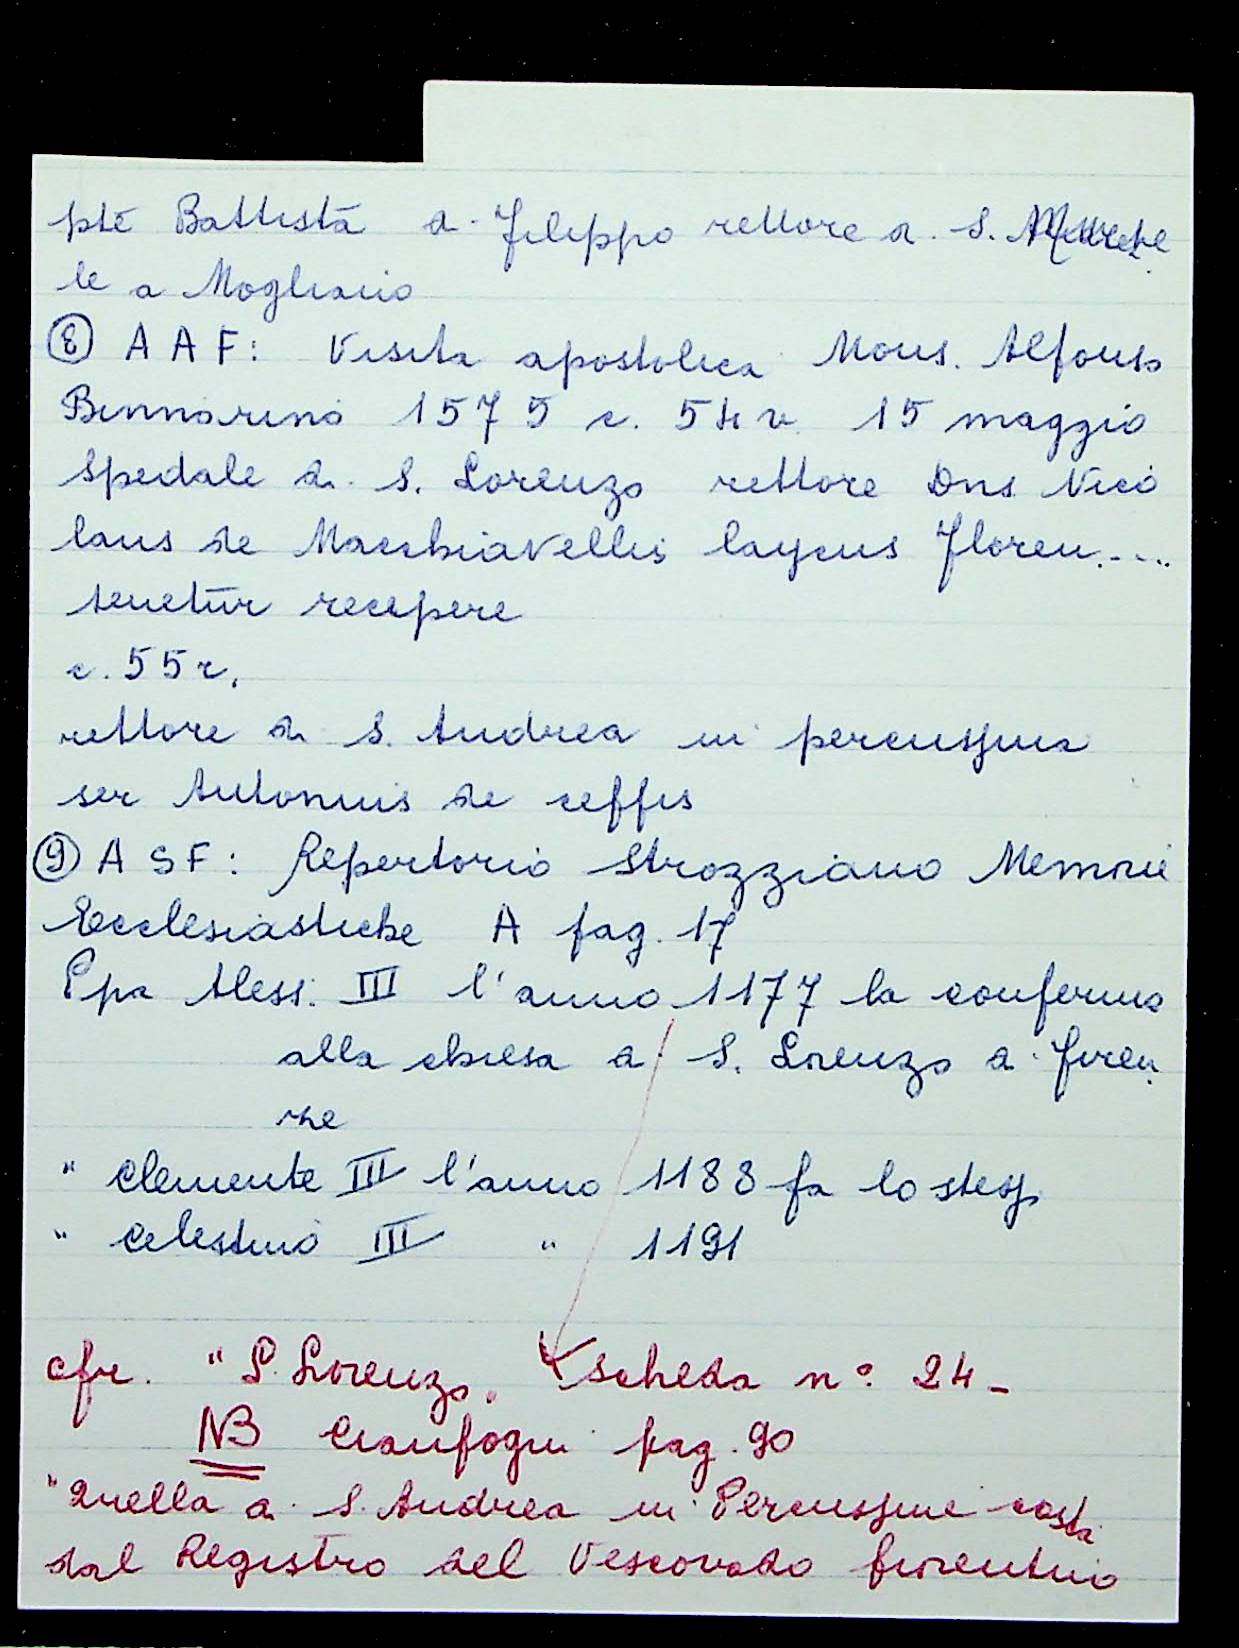 pte Battista di Filippo rettore di S. Miche
le a Mogliano
⑧ A A F: Visita apostolica Mons. Alfonso
Binnarino 1575 c. 54 v. 15 maggio
Spedale di S. Lorenzo rettore Dns Nico
laus de Macchiavellis laycus Floren....
tenetur recepere
c. 55 r.
rettore di S. Andrea in percussina
ser Antonius de ceffis
⑨ A S F: Repertorio Strozziano Memorie
Ecclesiastiche A pag. 17
Ppa Aless. III l'anno 1177 la conferma
alla chiesa di S. Lorenzo di Firen
ze
" Clemente III l'anno 1188 fa lo stesso
" Celestino III " 1191
cfr. "S. Lorenzo" scheda n° 24 -
NB Cianfogni pag. 90
"Quella di S. Andrea in Percussine costa
dal Registro del Vescovado fiorentino